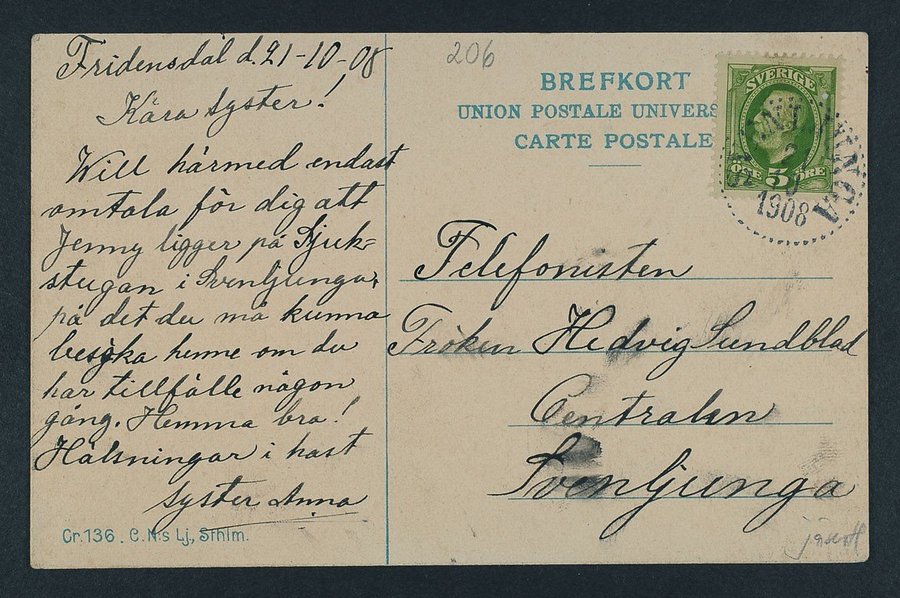 Fridensdal d. 21-10-08
Kära syster!
Will härmed endast
omtala för dig att
Jenny ligger på Sjuk=
stugan i Svenljunga,
på det du må kunna
besöka henne om du
har tillfälle någon
gång. Hemma bra!
Hälsningar i hast
syster Anna
Cr.136. C.N:s Lj., Sthlm.
206
BREFKORT
UNION POSTALE UNIVERS
CARTE POSTALE
SVERIGE
ÖRE 5 ÖRE
1908
Telefonisten
Fröken Hedvig Sundblad
Centralen
Svenljunga